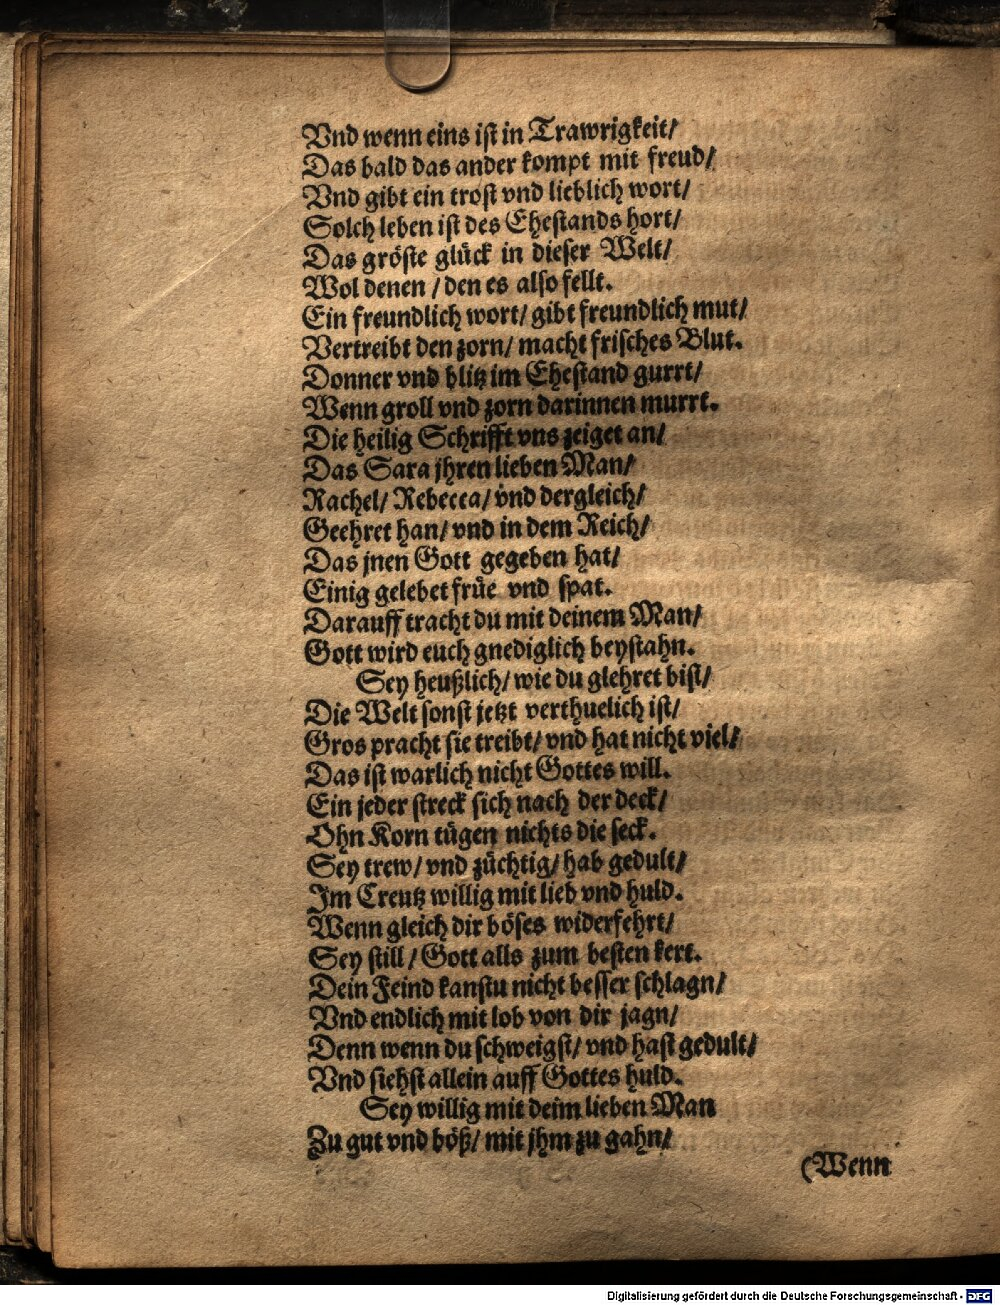 Vnd wenn eins ist in Trawrigkeit/
Das bald das ander kompt mit freud/
Vnd gibt ein trost vnd lieblich wort/
Solch leben ist des Ehestands hort/
Das gröste glück in dieser Welt/
Wol denen / den es also fellt.
Ein freundlich wort/ gibt freundlich mut/
Vertreibt den zorn/ macht frisches Blut.
Donner vnd blitz im Ehestand gurrt/
Wenn groll vnd zorn darinnen murrt.
Die heilig Schrifft vns zeiget an/
Das Sara jhren lieben Man/
Rachel/ Rebecca/ vnd dergleich/
Geehret han/ vnd in dem Reich/
Das jnen Gott gegeben hat/
Einig gelebet früe vnd spat.
Darauff tracht du mit deinem Man/
Gott wird euch gnediglich beystahn.
Sey heußlich/ wie du glehret bist/
Die Welt sonst jetzt verthuelich ist/
Gros pracht sie treibt/ vnd hat nicht viel/
Das ist warlich nicht Gottes will.
Ein jeder streck sich nach der deck/
Ohn Korn tügen nichts die seck.
Sey trew/ vnd züchtig/ hab gedult/
Im Creutz willig mit lieb vnd huld.
Wenn gleich dir böses widerfehrt/
Sey still / Gott alls zum besten kert.
Dein Feind kanstu nicht besser schlagn/
Vnd endlich mit lob von dir jagn/
Denn wenn du schweigst/ vnd hast gedult/
Vnd siehst allein auff Gottes huld.
Sey willig mit deim lieben Man
Zu gut vnd böß/ mit jhm zu gahn/
(Wenn
Digitalisierung gefördert durch die Deutsche Forschungsgemeinschaft - DFG